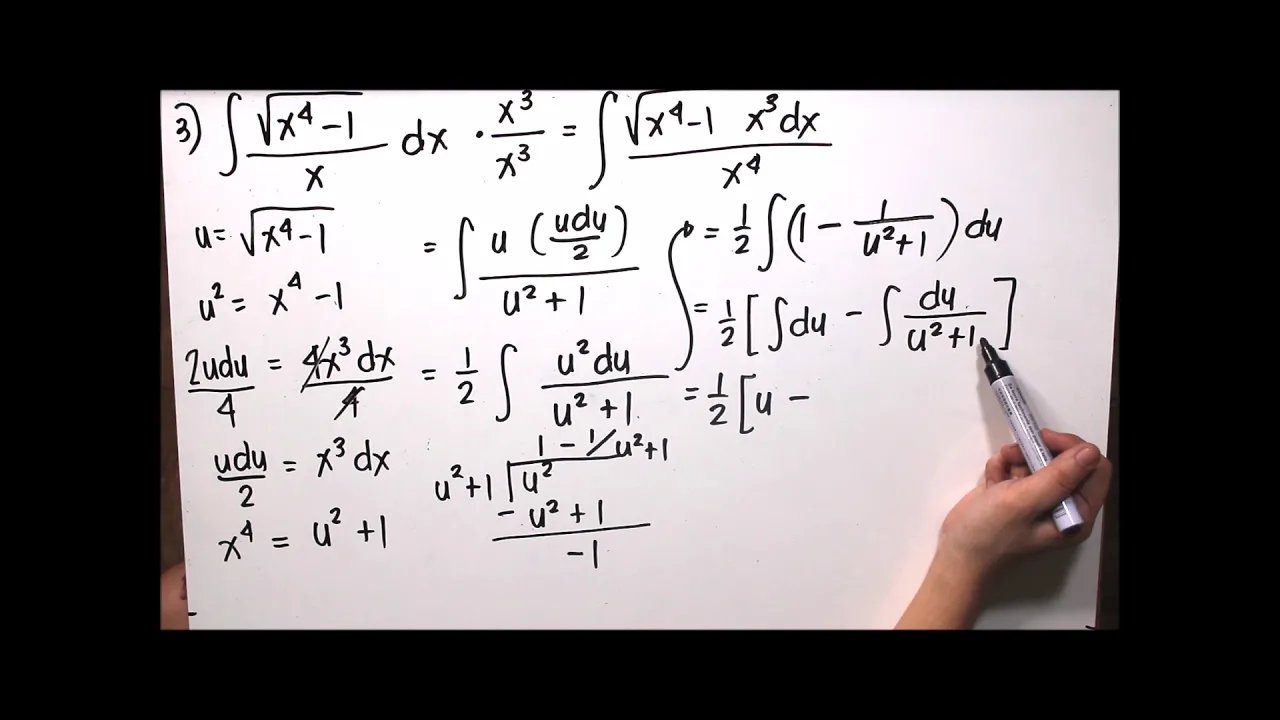 3) ∫ √(x⁴-1) / x dx · x³/x³ = ∫ √(x⁴-1) x³dx / x⁴
u = √(x⁴-1)
u² = x⁴ -1
2udu/4 = 4x³dx/4
udu/2 = x³dx
x⁴ = u² +1
= ∫ u (udu/2) / u² + 1
= 1/2 ∫ u²du / u² +1
1 - 1/u²+1
u²+1 u²
- u² + 1
-1
= 1/2 ∫ (1 - 1/u²+1) du
= 1/2 [∫ du - ∫ du/u²+1]
= 1/2 [u -